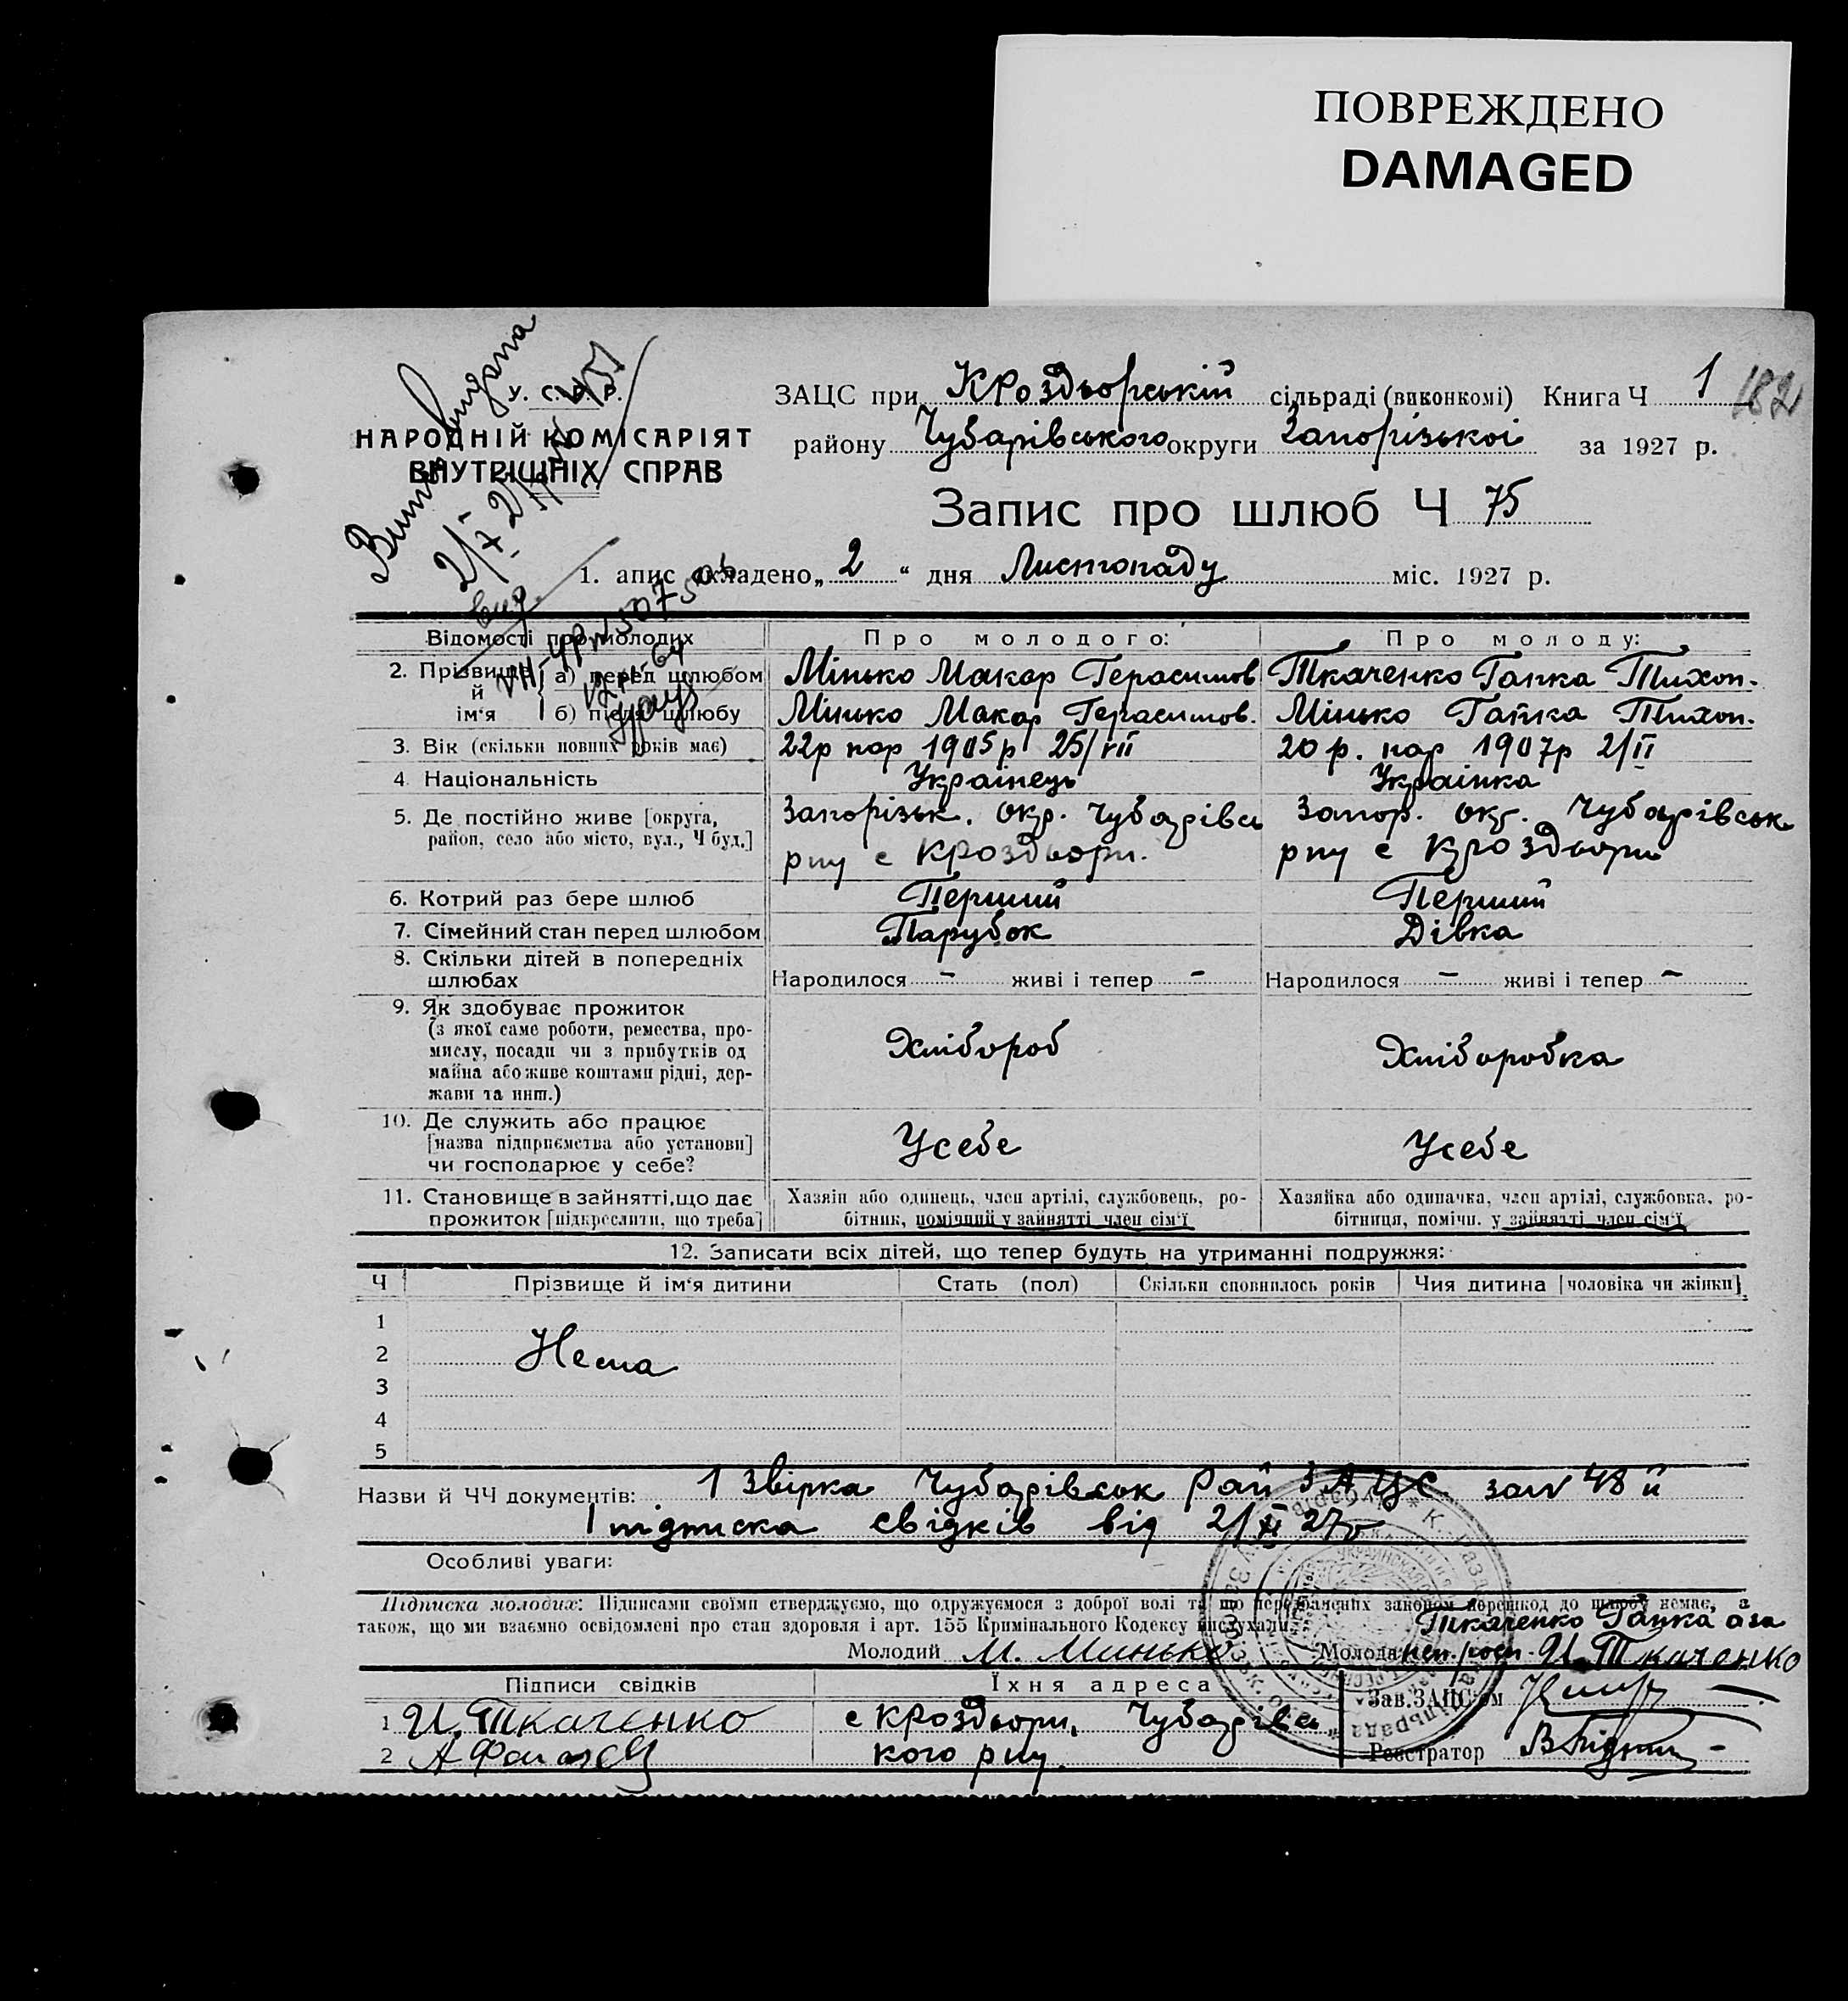 ПОВРЕЖДЕНО
DAMAGED
У. С. Р. Р.
НАРОДНІЙ КОМІСАРІЯТ
ВНУТРІШНІХ СПРАВ
ЗАЦС при КРоздьорській сільраді (виконкомі) Книга Ч 1
182
району Чубарівського округи Запорізькоі за 1927 р.
Запис про шлюб Ч 75
1. апис складено „ 2 “ дня Листопаду міс. 1927 р.
Відомості про молодих Про молодого: Про молоду:
2. Прізвище й ім'я
а) перед шлюбом Мінько Макар Герасимов Ткаченко Ганка Тихон.
б) після шлюбу Мінько Макар Герасимов. Мінько Ганка Тихон.
3. Вік (скільки повних років має) 22р нар 1905р 25/VII 20 р. нар 1907р 2/II
4. Національність Українець Украінка
5. Де постійно живе [округа, Запорізьк. окр. Чубарівсь Запор. окр. Чубарівськ
район, село або місто, вул., Ч буд.] рну с Кроздьори. рну с Кроздьори
6. Котрий раз бере шлюб Перший Перший
7. Сімейний стан перед шлюбом Парубок Дівка
8. Скільки дітей в попередніх
шлюбах Народилося - живі і тепер - Народилося - живі і тепер -
9. Як здобуває прожиток
(з якої саме роботи, ремества, про-
мислу, посади чи з прибутків од Хлібороб Хліборобка
майна або живе коштами рідні, дер-
жави та инш.)
10. Де служить або працює
[назва підприємства або установи] Усебе Усебе
чи господарює у себе?
11. Становище в зайнятті, що дає Хазяін або одинець, член артілі, службовець, ро- Хазяйка або одиначка, член артілі, службовка, ро-
прожиток [підкреслити, що треба] бітник, помічний у зайнятті член сім'ї бітниця, помічн. у зайнятті член сім'ї
12. Записати всіх дітей, що тепер будуть на утриманні подружжя:
Ч Прізвище й ім'я дитини Стать (пол) Скільки сповнилось років Чия дитина [чоловіка чи жінки]
1
2 Нема
3
4
5
Назви й ЧЧ документів: 1 Звірка Чубарівськ Рай ЗАЦС
1 підписка свідків від 2/XI 27р
Особливі уваги:
Підписка молодих: Підписами своїми стверджуємо, що одружуємося з доброї волі та що передбачених законом перешкод до шлюбу немає, а
також, що ми взаємно освідомлені про стан здоровля і арт. 155 Кримінального Кодексу вислухали.
Ткаченко Ганка а за
Молодий М. Минько Молода неп. росп. И. Ткаченко
Підписи свідків Їхня адреса Зав. ЗАЦС'ом
1 И. Ткаченко с Кроздьори, Чубарівсь
2 кого рну. Реєстратор